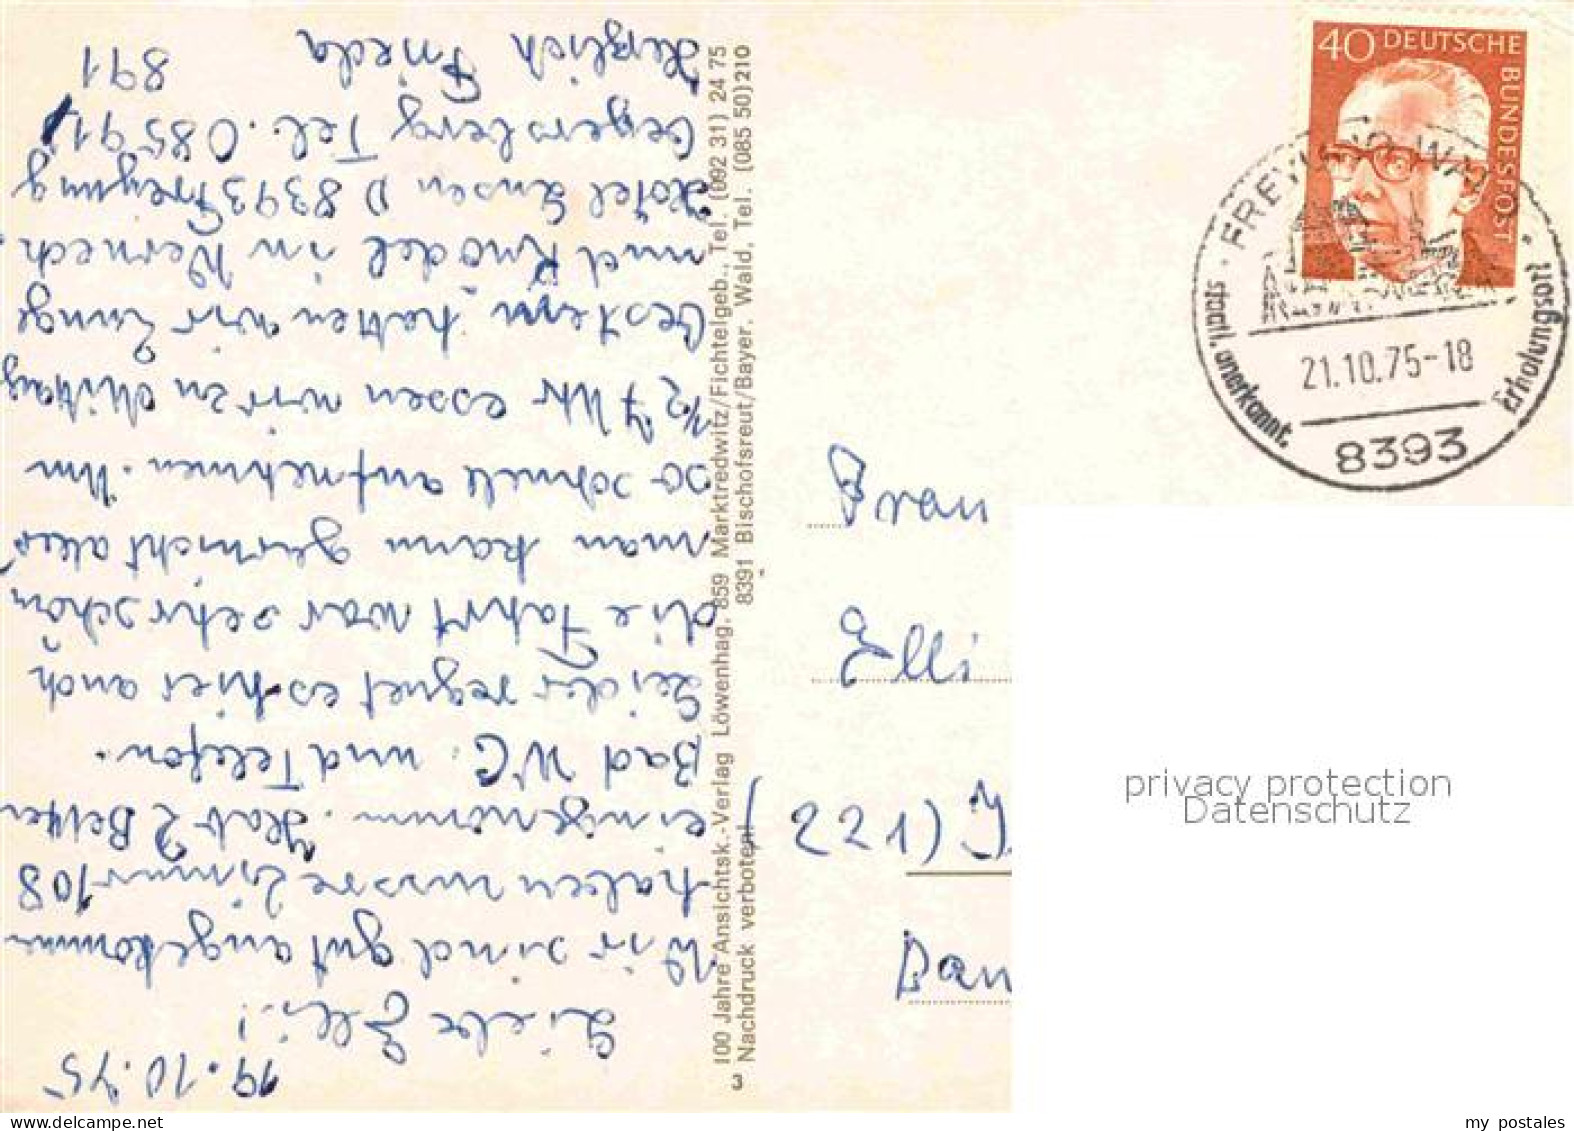 19.10.75
Liebe Elli!
Wir sind gut angekommen
haben unsre Zimmer 108
eingenomm. Hab 2 Betten
Bad WC. und Telefon.
Leider regnet es hier auch
die Fahrt war sehr schön
man kann garnicht alles
so schnell aufnehmen. Um
1/2 7 Uhr essen wir zu Mittag
Gestern hatten wir Zunge
und Knödel in
Hotel D 8393 Freyung
Geyersberg Tel. 08591/
Herzlich Frieda 891
100 Jahre Ansichtsk.-Verlag Löwenhag, 859 Marktredwitz/Fichtelgeb., Tel. (092 31) 24 75
Nachdruck verboten! 8391 Bischofsreut/Bayer. Wald, Tel. (085 50) 210
3
40 DEUTSCHE BUNDESPOST
FREYUNG WALD
staatl. anerkannt. Erholungsort
21.10.75-18
8393
Frau
Elli
(221) J
Dan
privacy protection
Datenschutz
my postales